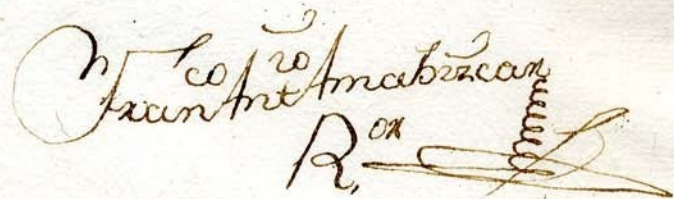 Fran^co Ant^io Amabizcar
R.^or